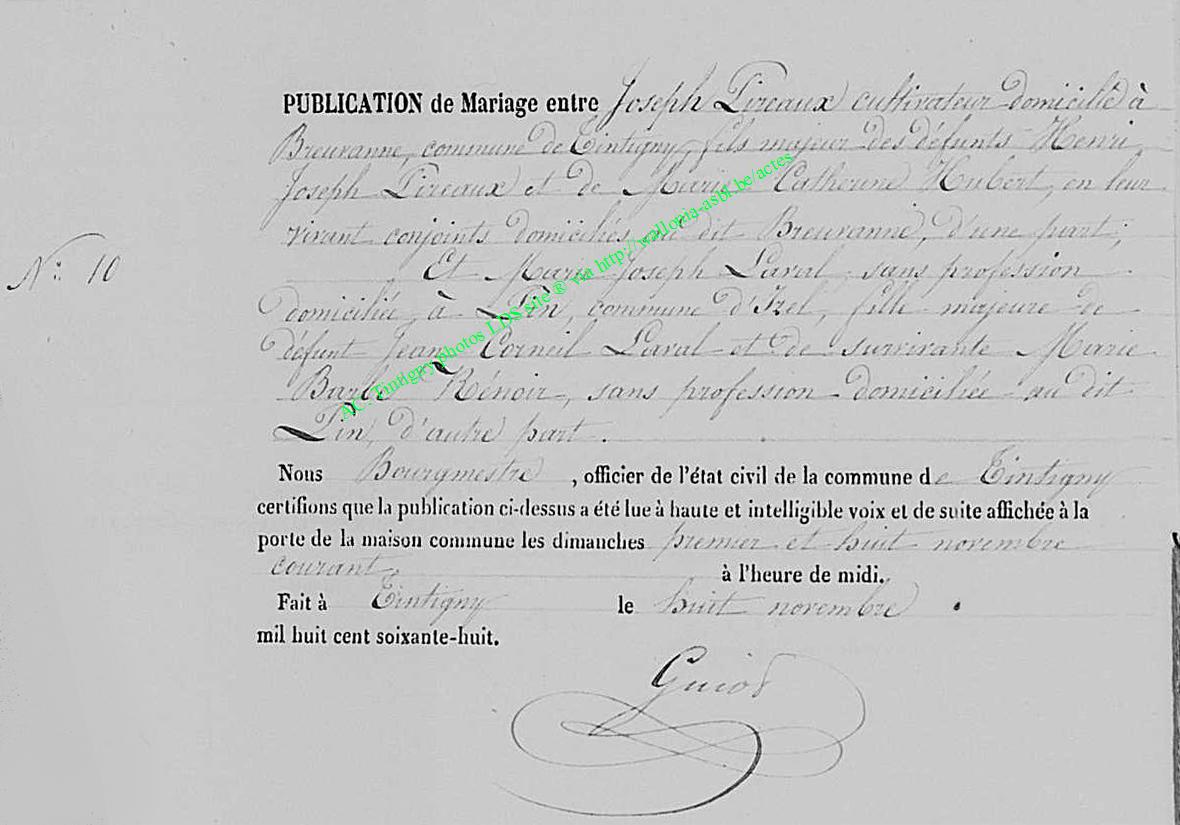 PUBLICATION de Mariage entre Joseph Pireaux cultivateur domicilié à
Breuvanne, commune de Tintigny, fils majeur des défunts Henri
Joseph Pireaux et de Marie Catherine Hubert, en leur
vivant conjoints domiciliés au dit Breuvanne, d'une part;
N° 10
Et Marie Joseph Laval sans profession
domiciliée à Pin, commune d'Izel, fille majeure de
défunt Jean Corneil Laval et de survivante Marie
Barbe Rénoir, sans profession domiciliée au dit
Pin, d'autre part.
AC. Tintigny photos LDS site ® via http://wallonia-asbl.be/actes
Nous Bourgmestre, officier de l'état civil de la commune de Tintigny
certifions que la publication ci-dessus a été lue à haute et intelligible voix et de suite affichée à la
porte de la maison commune les dimanches premier et huit novembre
courant, à l'heure de midi.
Fait à Tintigny le huit novembre
mil huit cent soixante-huit.